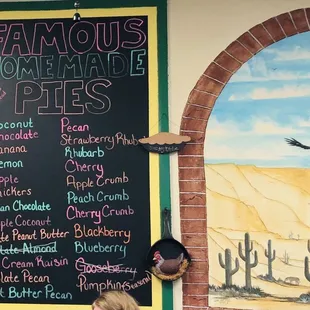 FAMOUS
HOMEMADE
PIES
oconut
hocolate
anana
emon
pple
nickers
an Chocolate
Apple Coconut
te Peanut Butter
late Almond
Cream Raisin
late Pecan
t Butter Pecan
Pecan
Strawberry Rhub
Rhubarb
Cherry
Apple Crumb
Peach Crumb
Cherry Crumb
Blackberry
Blueberry
Gooseberry
Pumpkin (Seasonal)